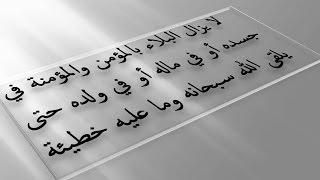 لا يزال البلاء بالمؤمن والمؤمنة في
جسده أو في ماله أو في ولده حتى
يلقى الله سبحانه وما عليه خطيئة